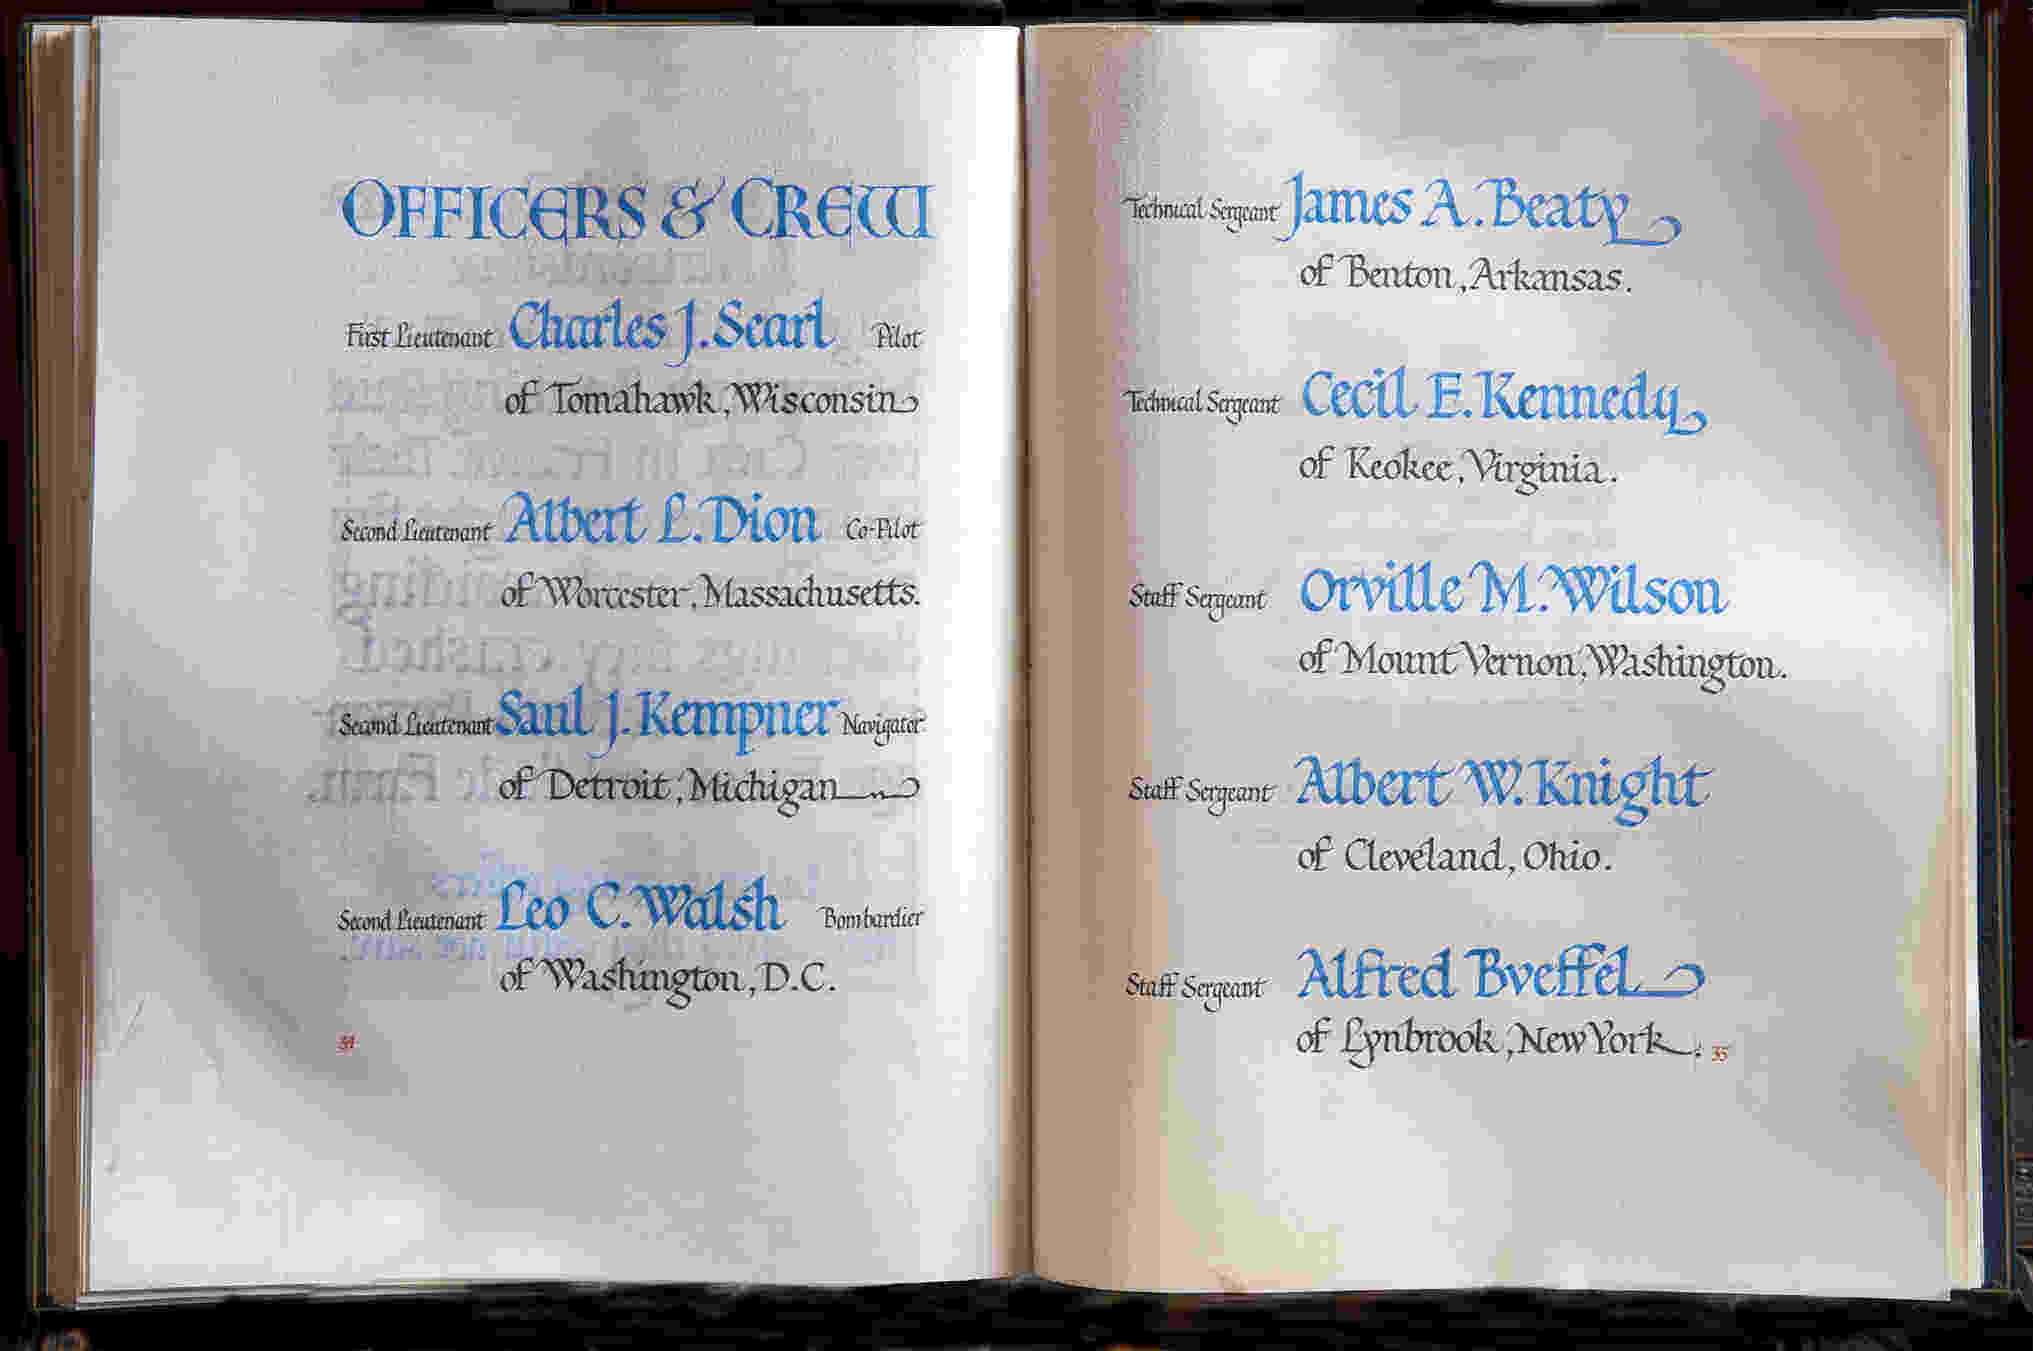 OFFICERS & CREW
First Lieutenant Charles J. Searl Pilot
of Tomahawk, Wisconsin
Second Lieutenant Albert L. Dion Co-Pilot
of Worcester, Massachusetts.
Second Lieutenant Saul J. Kempner Navigator
of Detroit, Michigan
Second Lieutenant Leo C. Walsh Bombardier
of Washington, D.C.
34
Technical Sergeant James A. Beaty
of Benton, Arkansas.
Technical Sergeant Cecil E. Kennedy
of Keokee, Virginia.
Staff Sergeant Orville M. Wilson
of Mount Vernon, Washington.
Staff Sergeant Albert W. Knight
of Cleveland, Ohio.
Staff Sergeant Alfred Bveffel
of Lynbrook, New York.
35